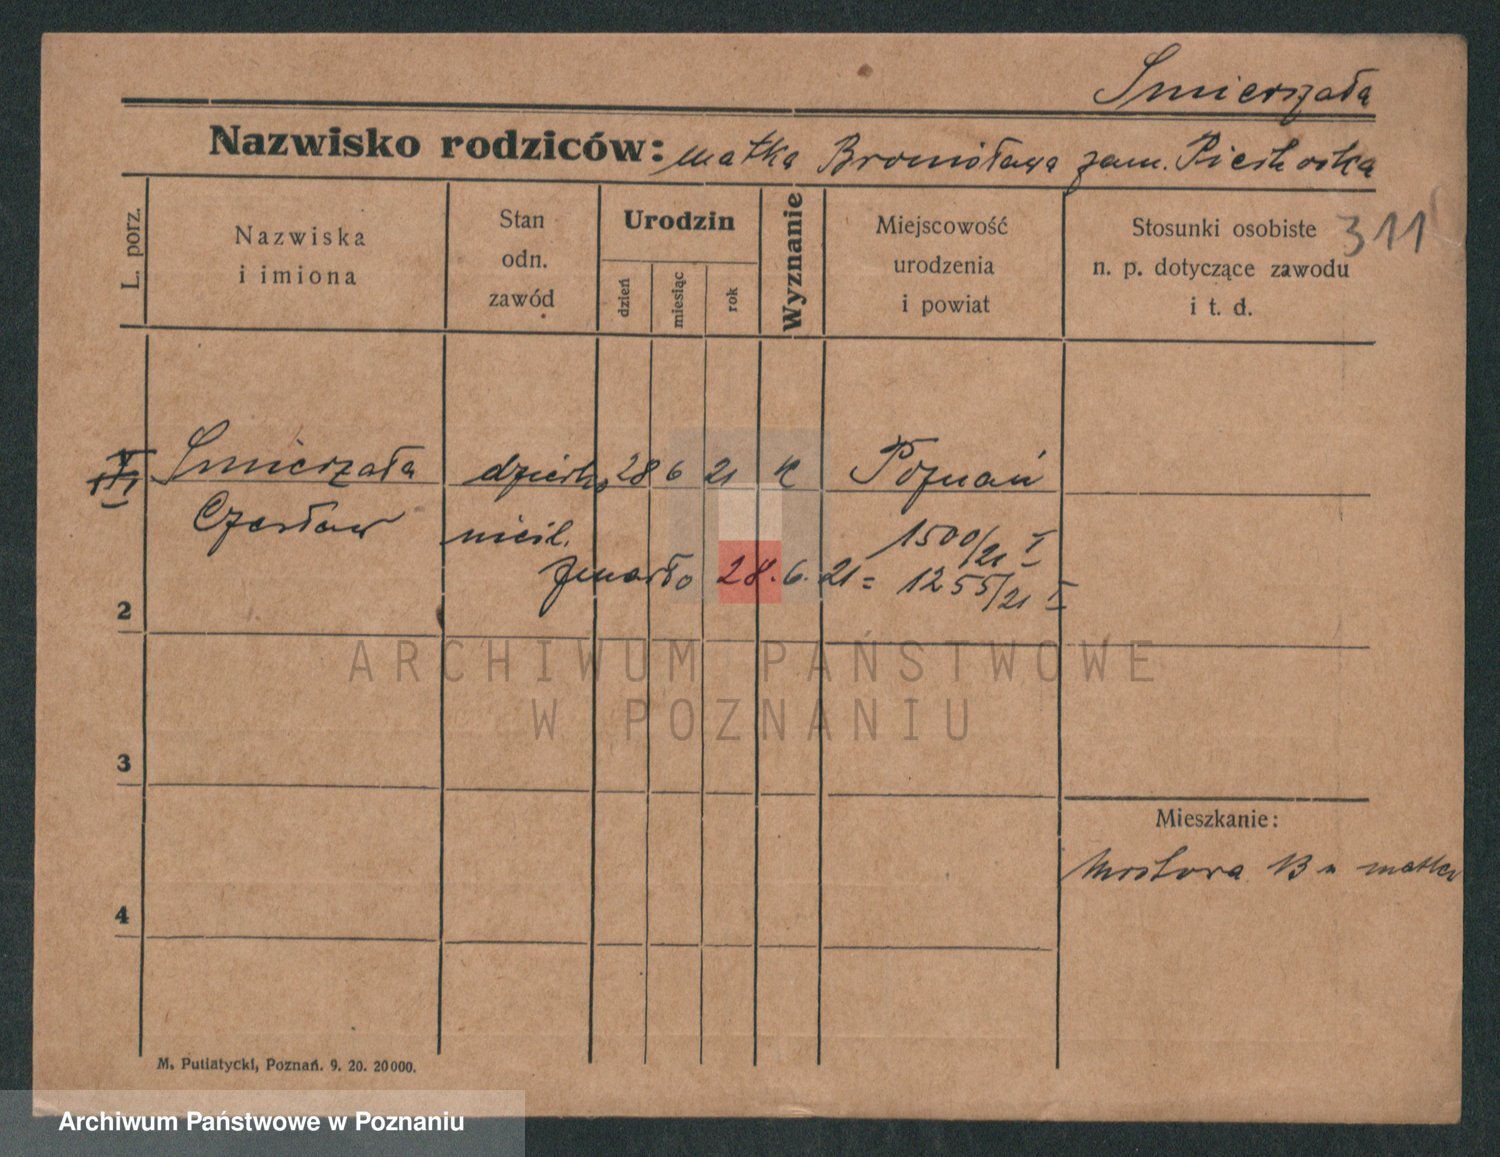 Smierzała
Nazwisko rodziców: matka Bronisława zam.
311
L. porz.
Nazwiska
i imiona
Stan
odn.
zawód
Urodzin
dzień
miesiąc
rok
Wyznanie
Miejscowość
urodzenia
i powiat
Stosunki osobiste
n. p. dotyczące zawodu
i t. d.
Smierzała dziecko 28 6 21 K Poznań
Czesław nieśl. 1500/21 I
zmarło 28. 6. 21 = 1255/21 I
2
ARCHIWUM PAŃSTWOWE
W POZNANIU
3
Mieszkanie:
13 u matki
4
M. Putiatycki, Poznań. 9. 20. 20000.
Archiwum Państwowe w Poznaniu